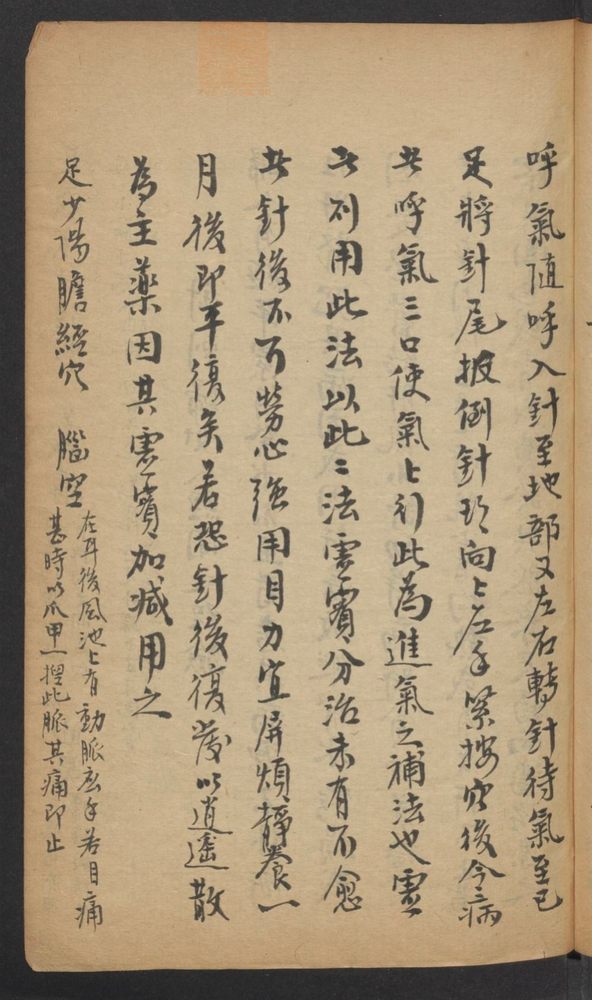 呼氣随呼入針至地部又左右轉針待氣至已
足將針尾扳倒針頭向上左手緊按穴後令病
者呼氣三口使氣上行此為進氣之補法也虛
者則用此法以此二法虛實分治未有不愈
者針後不可勞心强用目力宜屏煩靜養一
月後即平復矣若恐針後復發以逍遥散
為主藥因其虛實加减用之
足少陽膽經穴　腦空
在耳後風池上有動脈應手若目痛
甚時以爪甲一掐此脈其痛即止